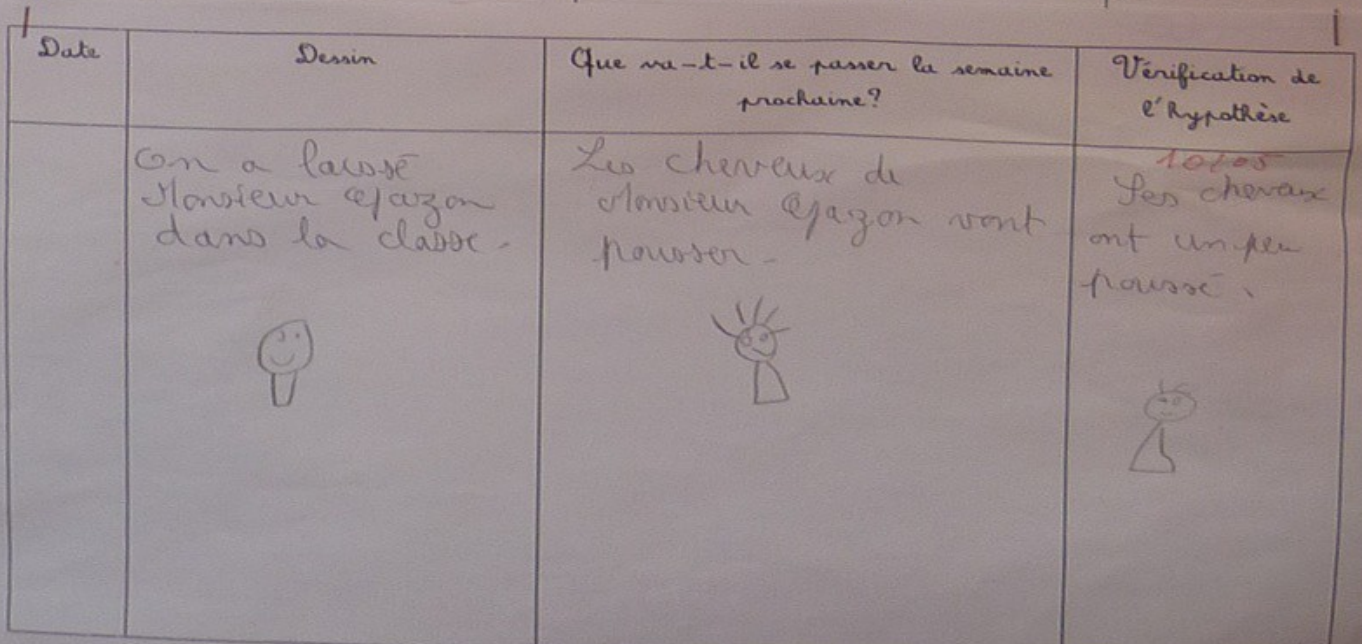 Date
Dessin
Que va-t-il se passer la semaine
prochaine?
Vérification de
l'hypothèse
On a laissé
Monsieur Gazon
dans la classe.
Les cheveux de
Monsieur Gazon vont
pousser.
10/05
Les chevaux
ont un peu
poussé.